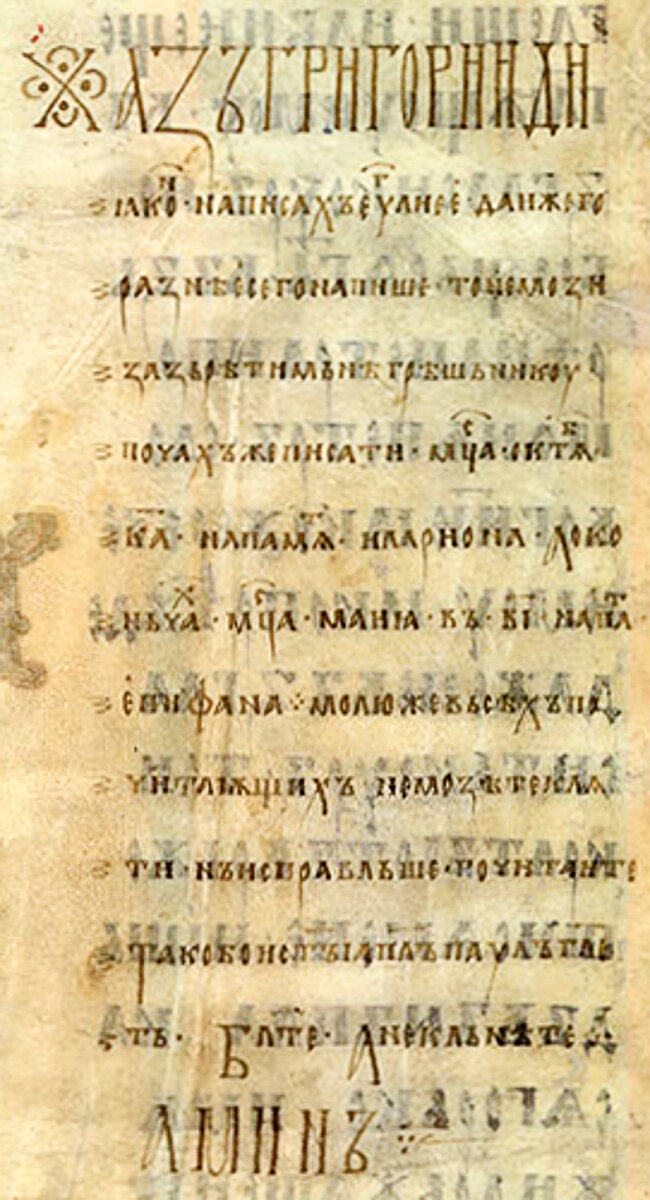 АЗЪ ГРИГОРИИ ДИ
ꙗкоⷩ҇· написахъ еуⷢ҇лие е· да иже го
разнѣе сего напише· то не мози
зазьрѣти мьнѣ грѣшьникоу
почахъ же писати· мⷭ҇ца· октѧⷠ҇·
к҃а· на памѧⷮ҇· илариона· А око
ньчаⷯ҇· мⷭ҇ца· маиꙗ· въ· в҃і· на паⷨ҇·
епифана ⁘ молю же вьсѣхъ по
читаѭщихъ не мозѣте клѧ
ти· нъ исправльше· почитаите
Тако бо и ст҃ыи ап҃лъ паулъ гл҃е
ть· Бл҃те· А не кльнѣте
АМИНЪ ⁘